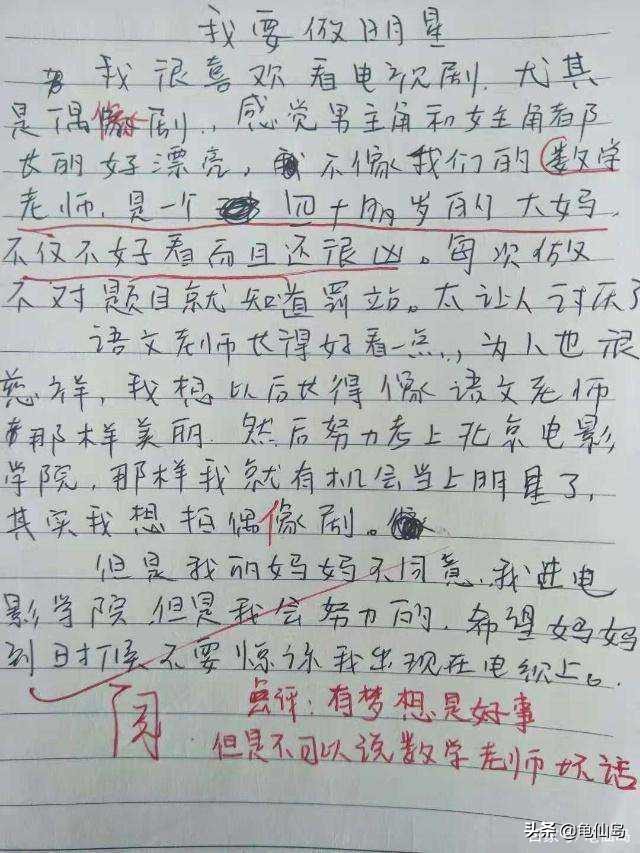 我要做明星
我很喜欢看电视剧.尤其
是偶像剧.,感觉男主角和女主角都
长的好漂亮,不像我们的数学
老师.是一个四十的岁的大妈.
不仅不好看而且还很凶。每次做
不对题目就知道罚站。太让人讨厌了
语文老师长得好看一点.,为人也很
慈祥,我想以后长得像语文老师
那样美丽.然后努力考上北京电影
学院,那样我就有机会当上明星了,
其实我想拍偶像剧。
但是我的妈妈不同意.我进电
影学院.但是我会努力的.希望妈妈
到时候不要惊讶我出现在电视上。
阅
点评:有梦想是好事
但是不可以说数学老师坏话
头条@龟仙岛